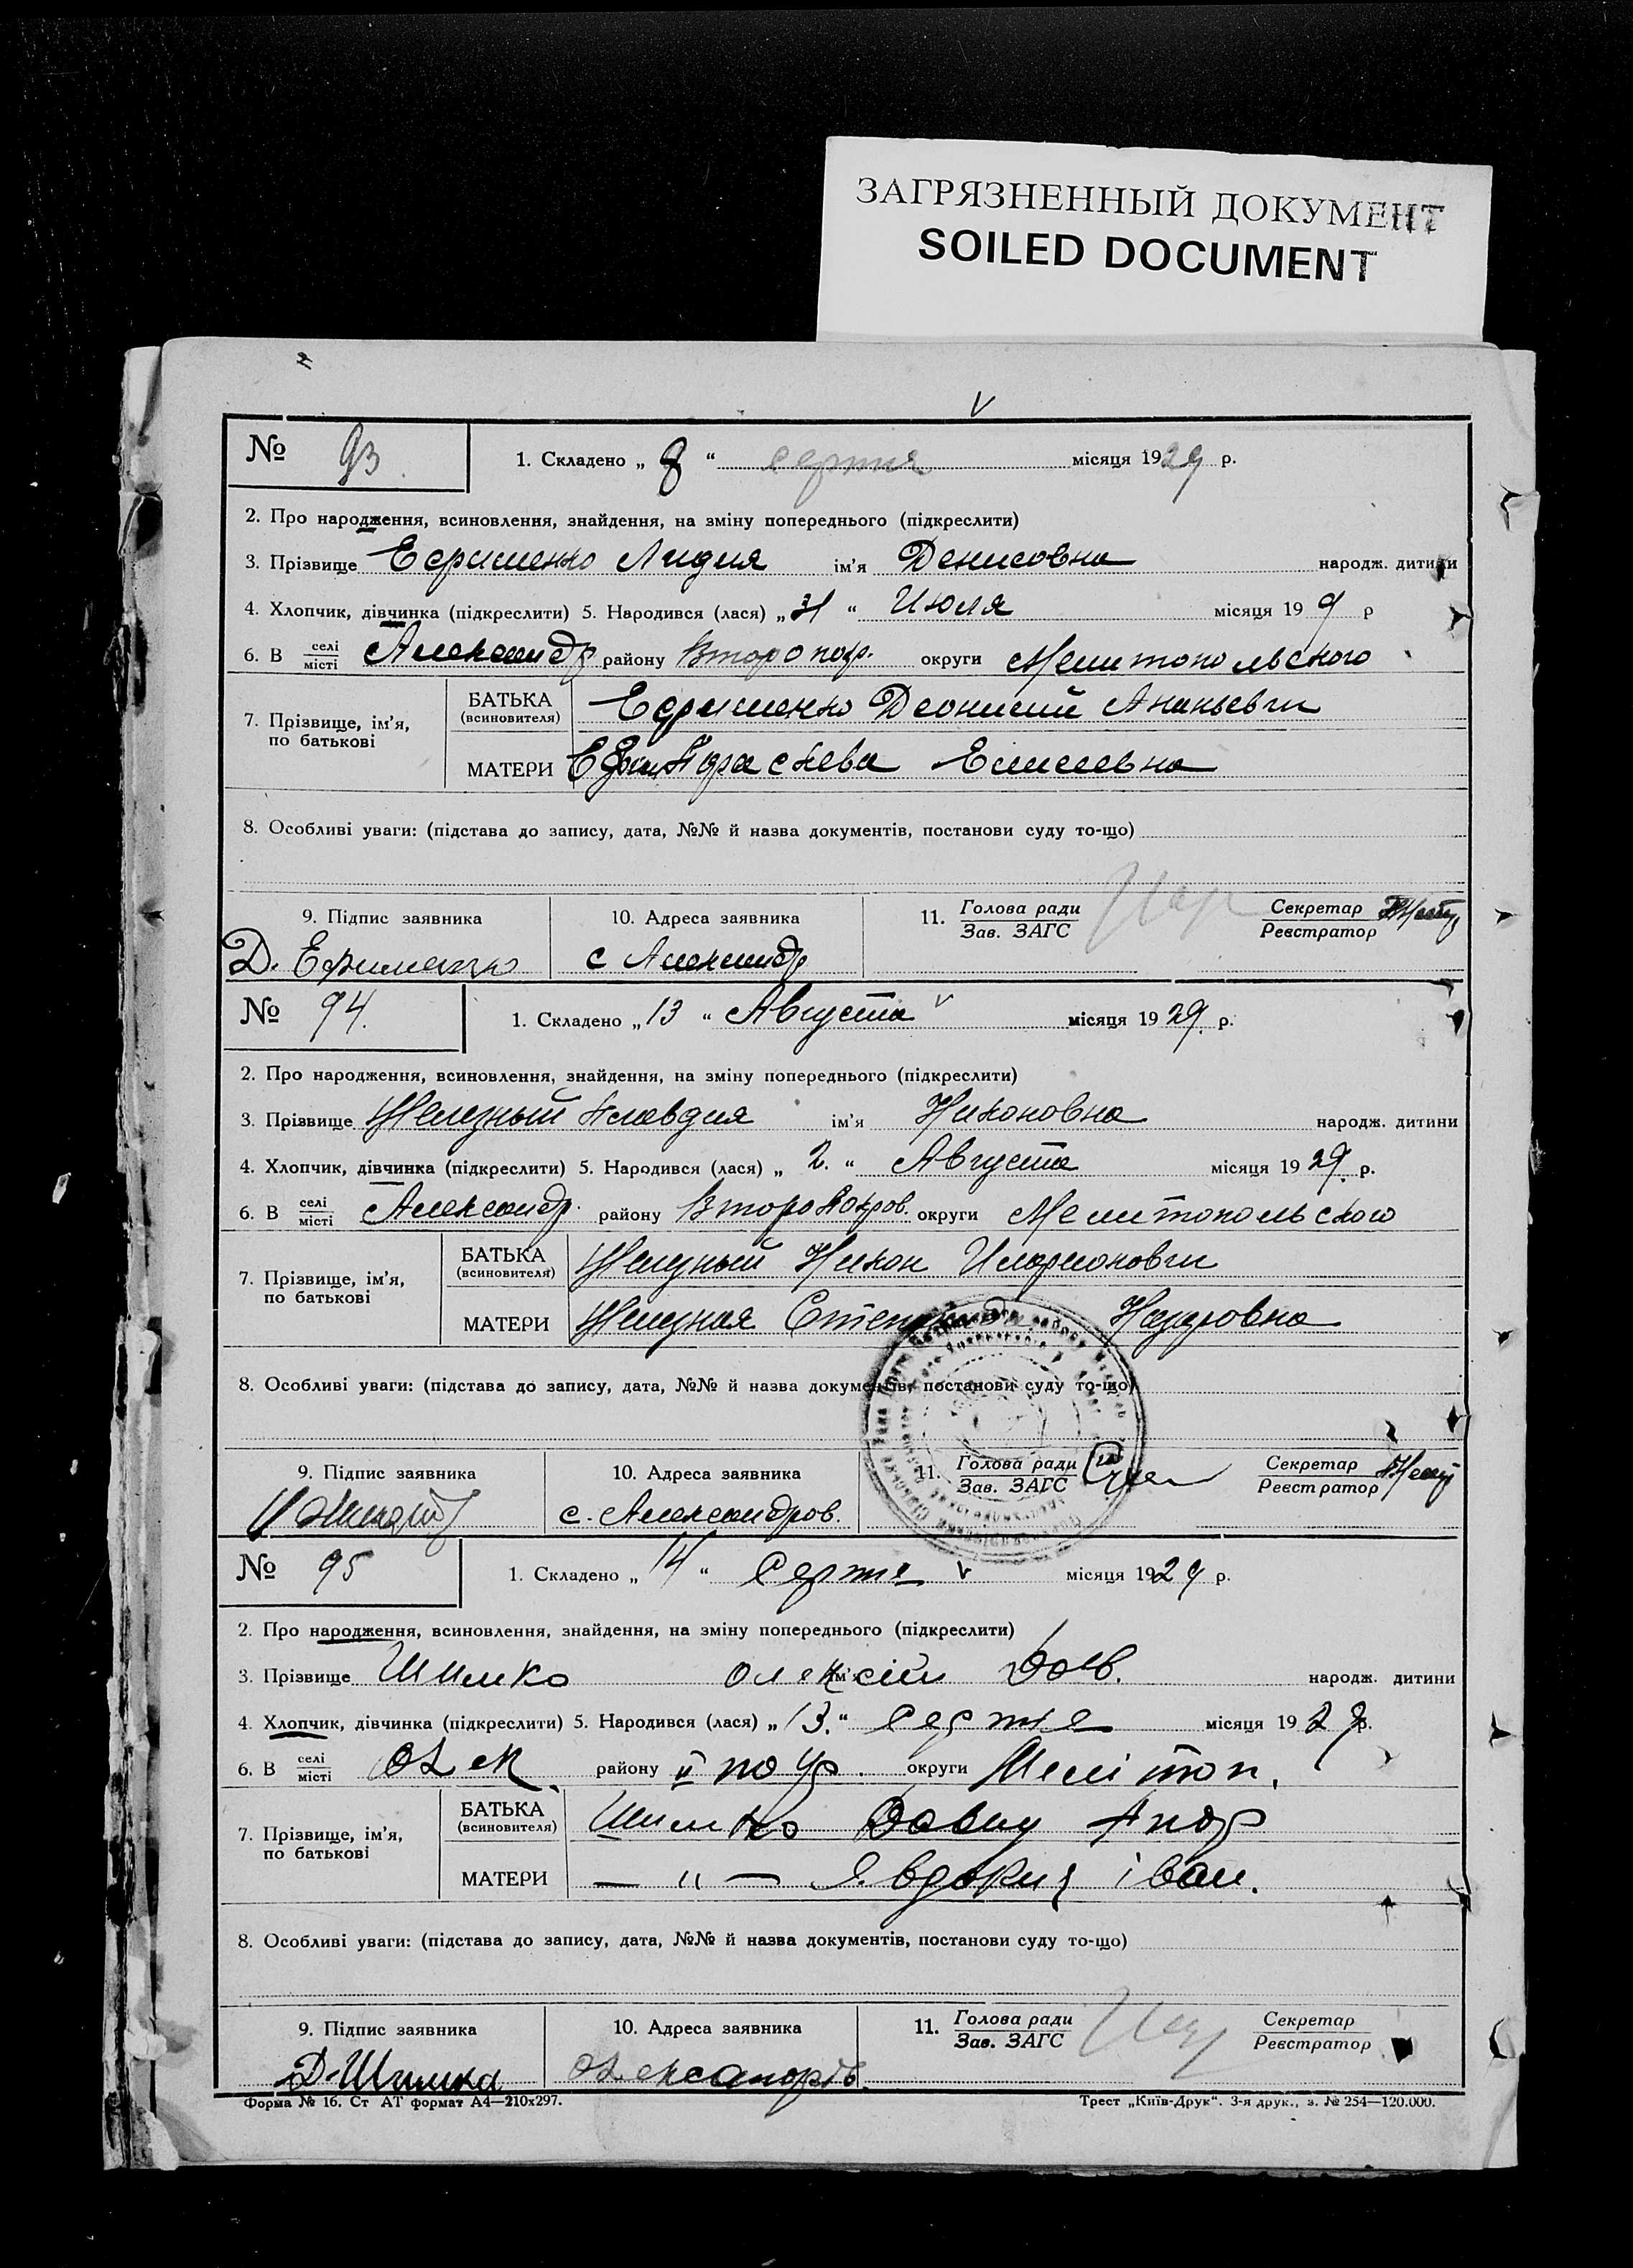 ЗАГРЯЗНЕННЫЙ ДОКУМЕНТ
SOILED DOCUMENT
№ 93. 1. Складено „ 8 “ серпня місяця 1929 р.
2. Про народження, всиновлення, знайдення, на зміну попереднього (підкреслити)
3. Прізвище Ефименко Лидия ім’я Денисовна народж. дитини
4. Хлопчик, дівчинка (підкреслити) 5. Народився (лася) „ 31 “ Июля місяця 19 9 р
6. В селі/місті Александр району Второпокр. округи Мелитопольского
7. Прізвище, ім’я, по батькові БАТЬКА (всиновителя) Ефименко Дионисий Ананьевич
МАТЕРИ Ефим Елисеевна
8. Особливі уваги: (підстава до запису, дата, №№ й назва документів, постанови суду то-що)
9. Підпис заявника 10. Адреса заявника 11. Голова ради/Зав. ЗАГС Секретар/Реєстратор
Д. Ефименко с Александр
№ 94. 1. Складено „ 13 “ Августа місяця 1929. р.
2. Про народження, всиновлення, знайдення, на зміну попереднього (підкреслити)
3. Прізвище Железный Клавдия ім’я Никоновна народж. дитини
4. Хлопчик, дівчинка (підкреслити) 5. Народився (лася) „ 2. “ Августа місяця 1929. р.
6. В селі/місті Александр. району ВтороПокров. округи Мелитопольского
7. Прізвище, ім’я, по батькові БАТЬКА (всиновителя) Железный Никон Иларионович
МАТЕРИ Железная Назаровна
8. Особливі уваги: (підстава до запису, дата, №№ й назва документів, постанови суду то-що)
9. Підпис заявника 10. Адреса заявника 11. Голова ради/Зав. ЗАГС Секретар/Реєстратор
с. Александров.
№ 95 1. Складено „ 14 “ Серпня місяця 1929 р.
2. Про народження, всиновлення, знайдення, на зміну попереднього (підкреслити)
3. Прізвище Шимко ім’я Олексій Дав. народж. дитини
4. Хлопчик, дівчинка (підкреслити) 5. Народився (лася) „ 13. “ Серпня місяця 1929 р.
6. В селі/місті Олек. району II покр. округи Мелітоп.
7. Прізвище, ім’я, по батькові БАТЬКА (всиновителя) Шимко Давид Андр
МАТЕРИ — „ — Явдокия Іван.
8. Особливі уваги: (підстава до запису, дата, №№ й назва документів, постанови суду то-що)
9. Підпис заявника 10. Адреса заявника 11. Голова ради/Зав. ЗАГС Секретар/Реєстратор
Д Шимка Олександрів.
Форма № 16. Ст АТ формат А4—210х297. Трест „Київ-Друк“. 3-я друк., з. № 254—120.000.